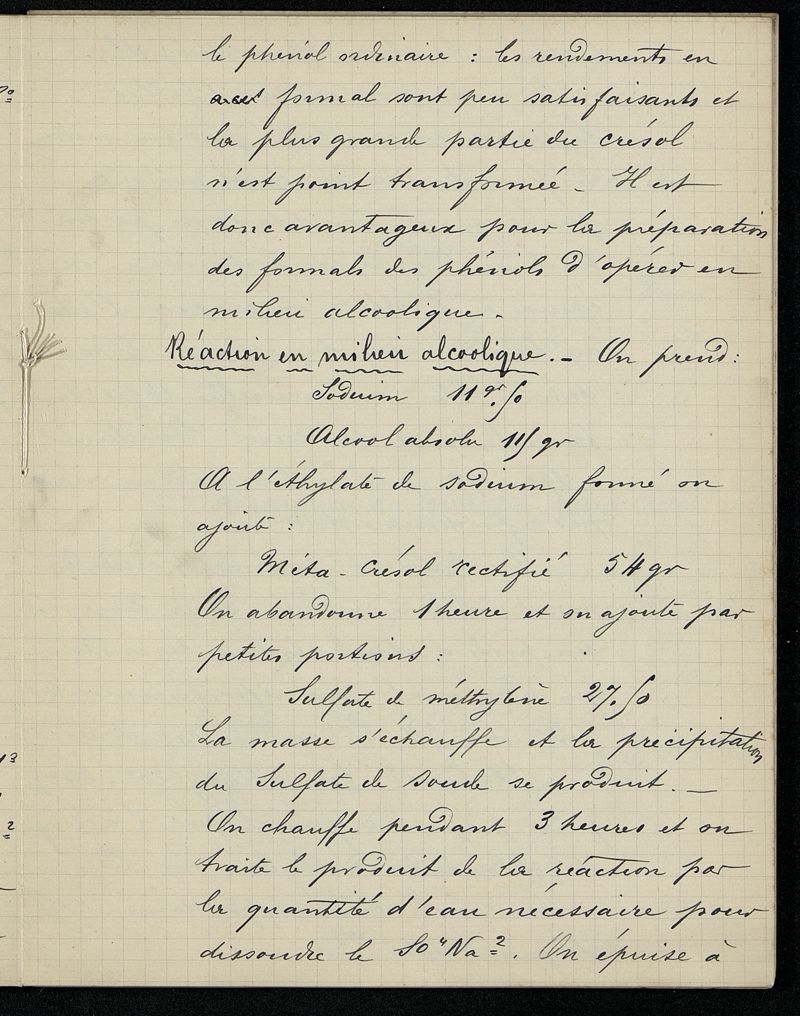 le phénol ordinaire : les rendements en
formal sont peu satisfaisants et
la plus grande partie du crésol
n'est point transformée - Il est
donc avantageux pour la préparation
des formals des phénols d'opérer en
milieu alcoolique -
Réaction en milieu alcoolique. - On prend :
Sodium 11 gr. 50
Alcool absolu 115 gr
A l'éthylate de sodium formé on
ajoute :
Méta - Crésol rectifié 54 gr
On abandonne 1 heure et on ajoute par
petites portions :
Sulfate de méthylène 27. 50
La masse s'échauffe et la précipitation
du Sulfate de Soude se produit. -
On chauffe pendant 3 heures et on
traite le produit de la réaction par
la quantité d'eau nécessaire pour
dissoudre le SO⁴Na². On épuise à